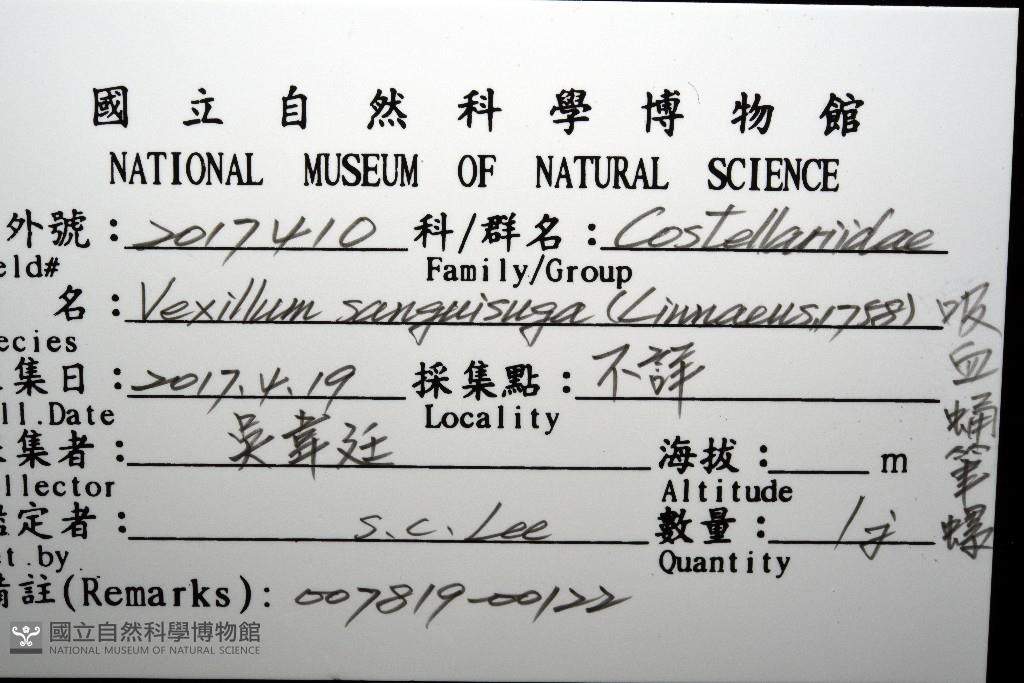 國立自然科學博物館
NATIONAL MUSEUM OF NATURAL SCIENCE
外號：2017410 科/群名：Costellariidae
eld# Family/Group
名：Vexillum sanguisuga (Linnaeus,1758)
吸血蛹筆螺
ecies
集日：2017.4.19 採集點：不詳
ll.Date Locality
集者：吳韋廷 海拔： m
llector Altitude
定者：S.C. Lee 數量：1
et.by Quantity
備註(Remarks): 007819-00122
國立自然科學博物館
NATIONAL MUSEUM OF NATURAL SCIENCE